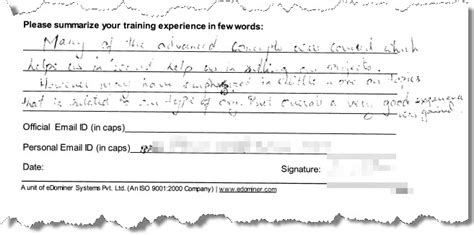 Please summarize your training experience in few words:
Many of the advanced concepts were covered which
helps us in and help us in our projects.
However may have emphasized a little more on Topics
that is related to our type of org. But overall a very good experience
was gained.
Official Email ID (in caps)
Personal Email ID (in caps)
Date: Signature:
A unit of eDominer Systems Pvt. Ltd. (An ISO 9001:2000 Company) | www.edominer.com